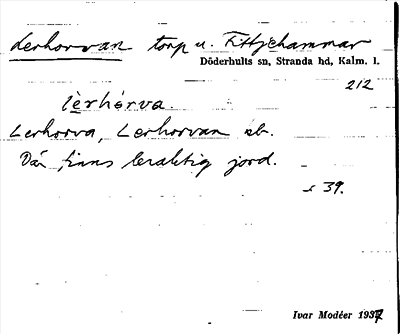 Lerhorvan torp u. Fittjehammar
Döderhults sn, Stranda hd, Kalm. l.
212
lèrhórva.
Lerhorva, Lerhorvan ab.
Där finns leraktig jord.
s 39.
Ivar Modéer 1937